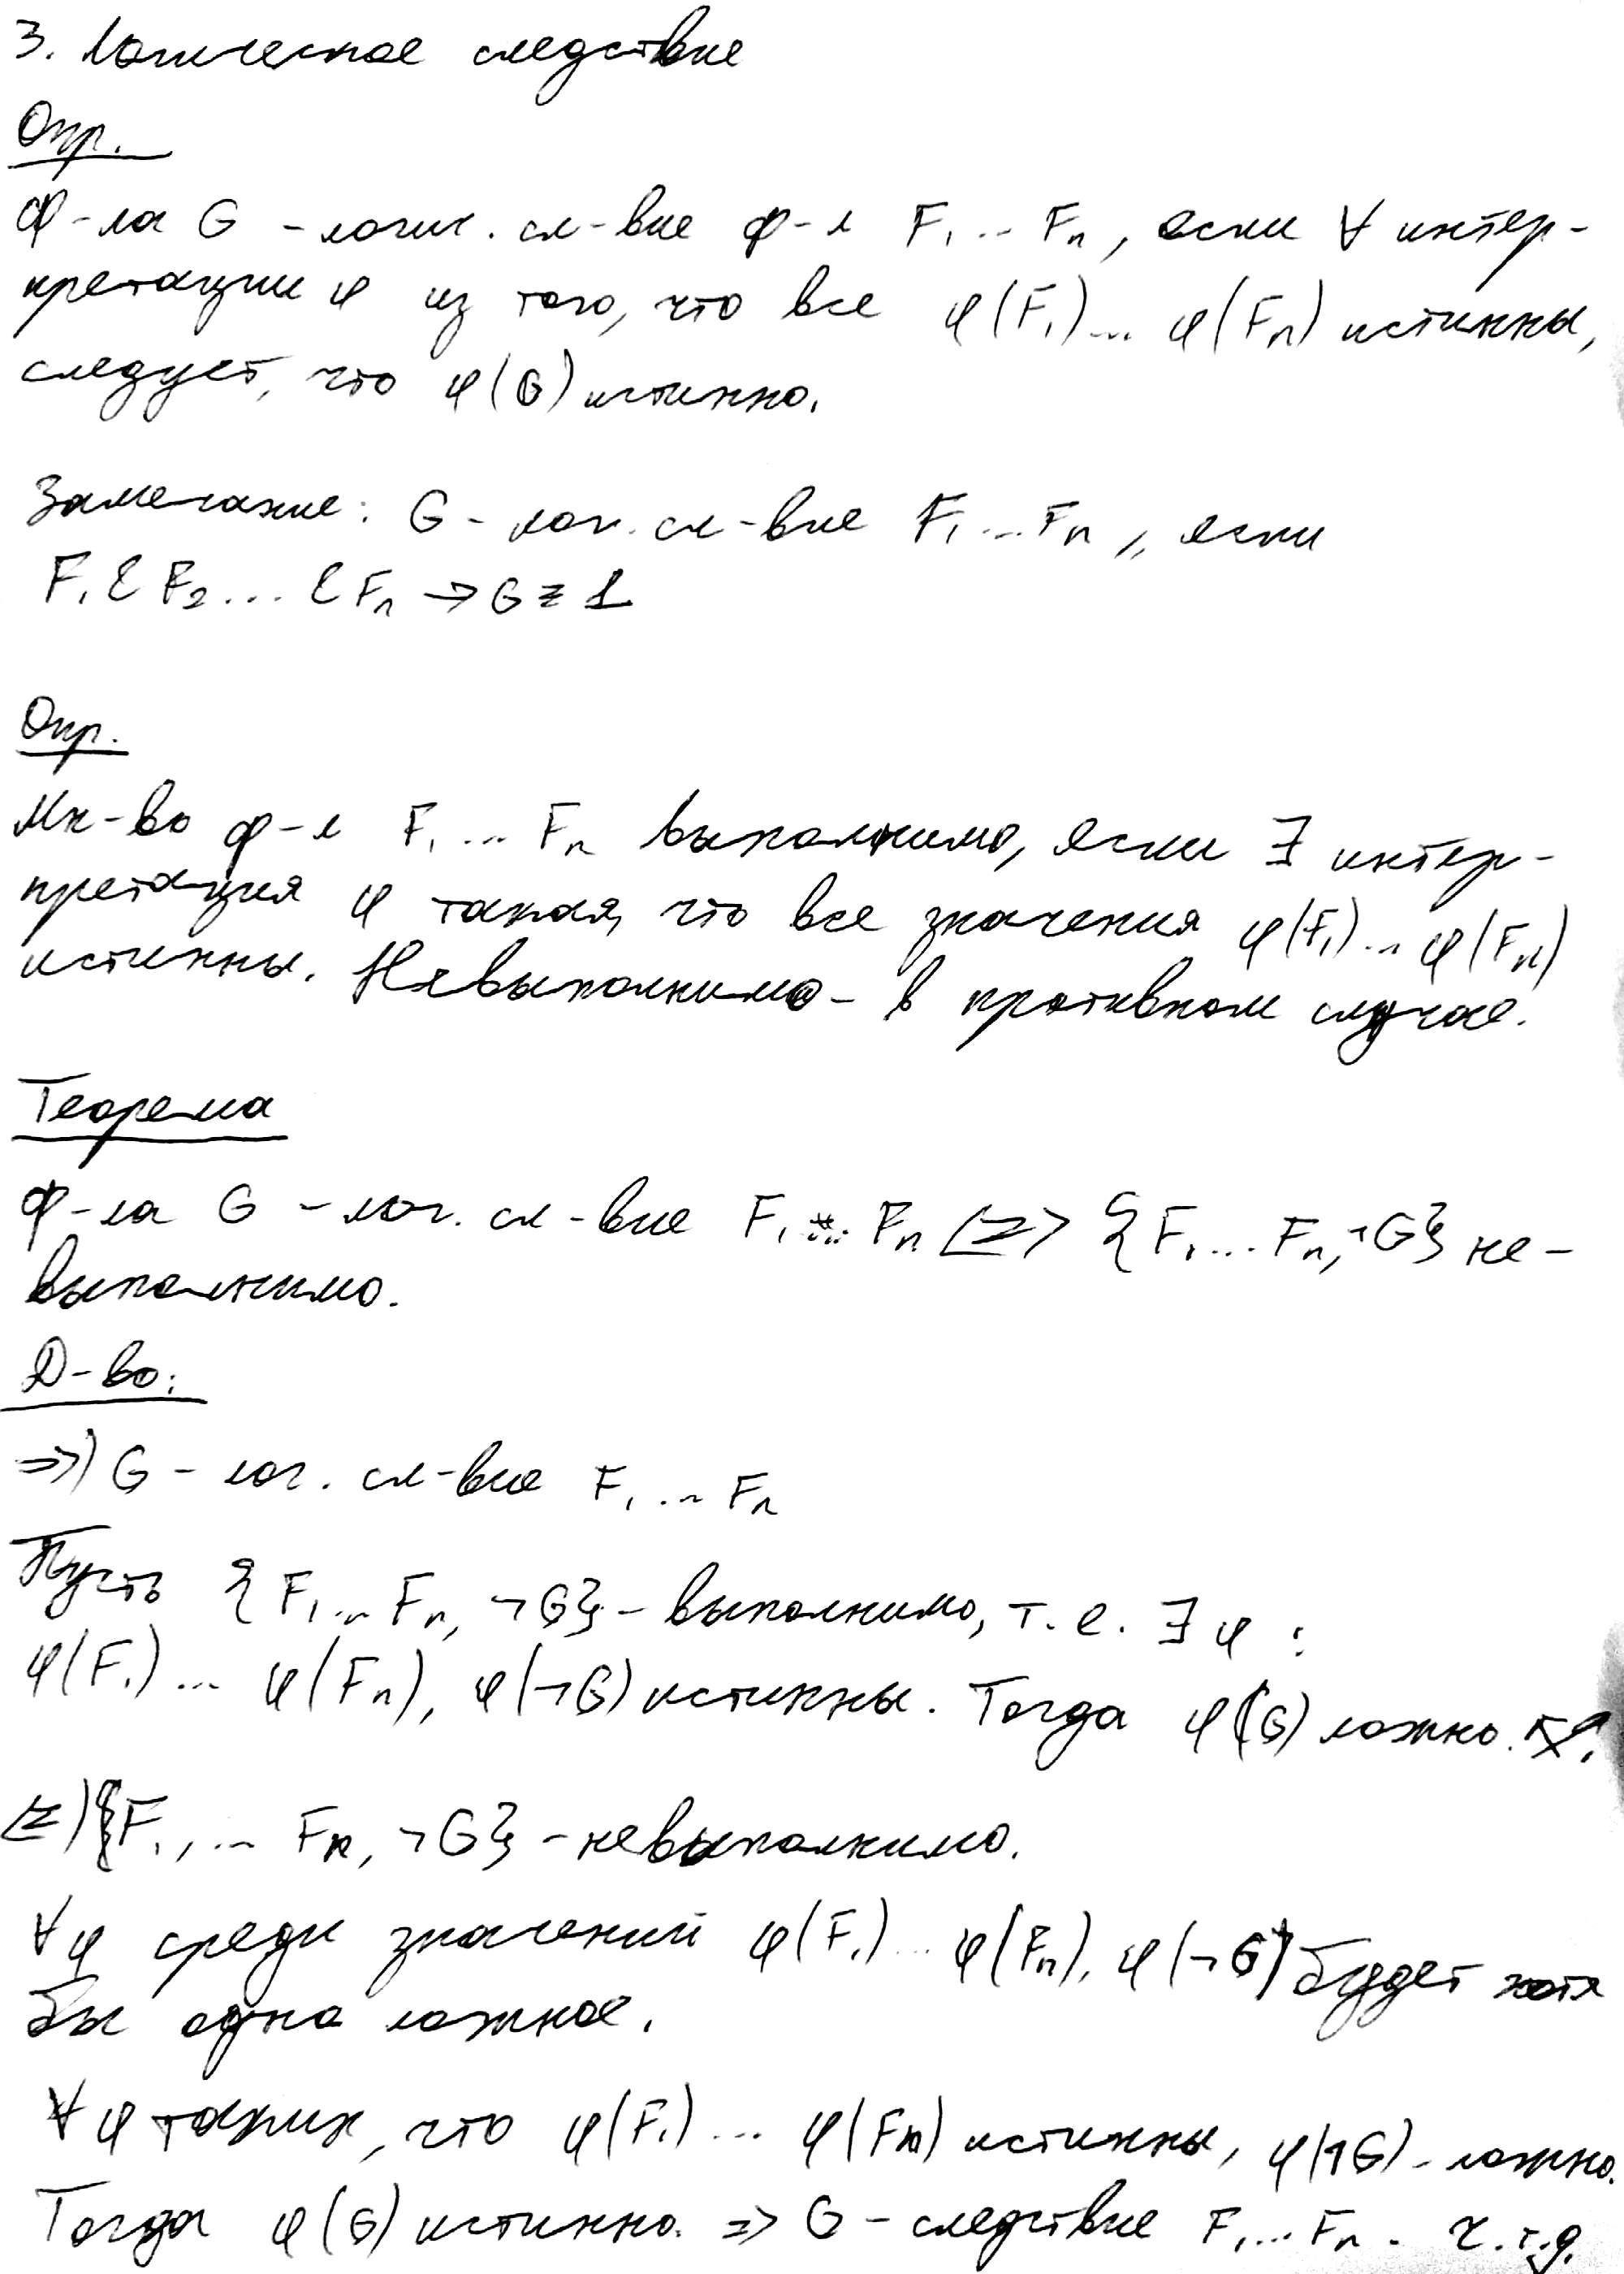 3. Логическое следствие
Опр.
Ф-ла G - логич. сл-вие ф-л F₁ ... Fₙ, если ∀ интер-
претации φ из того, что все φ(F₁) ... φ(Fₙ) истинны,
следует, что φ(G) истинно.
Замечание: G - лог. сл-вие F₁ ... Fₙ, если
F₁ & F₂ ... & Fₙ → G ≡ 1
Опр.
Мн-во ф-л F₁ ... Fₙ выполнимо, если ∃ интер-
претация φ такая, что все значения φ(F₁) ... φ(Fₙ)
истинны. Невыполнимо - в противном случае.
Теорема
Ф-ла G - лог. сл-вие F₁ ... Fₙ <=> {F₁ ... Fₙ, ¬G} не-
выполнимо.
Д-во:
=>) G - лог. сл-вие F₁ ... Fₙ
Пусть {F₁ ... Fₙ, ¬G} - выполнимо, т.е. ∃ φ :
φ(F₁) ... φ(Fₙ), φ(¬G) истинны. Тогда φ(G) ложно.
<=) {F₁, ... Fₙ, ¬G} - невыполнимо.
∀ φ среди значений φ(F₁) ... φ(Fₙ), φ(¬G) будет хотя
бы одно ложное.
∀ φ таких, что φ(F₁) ... φ(Fₙ) истинны, φ(¬G) - ложно.
Тогда φ(G) истинно. => G - следствие F₁ ... Fₙ. ч.т.д.